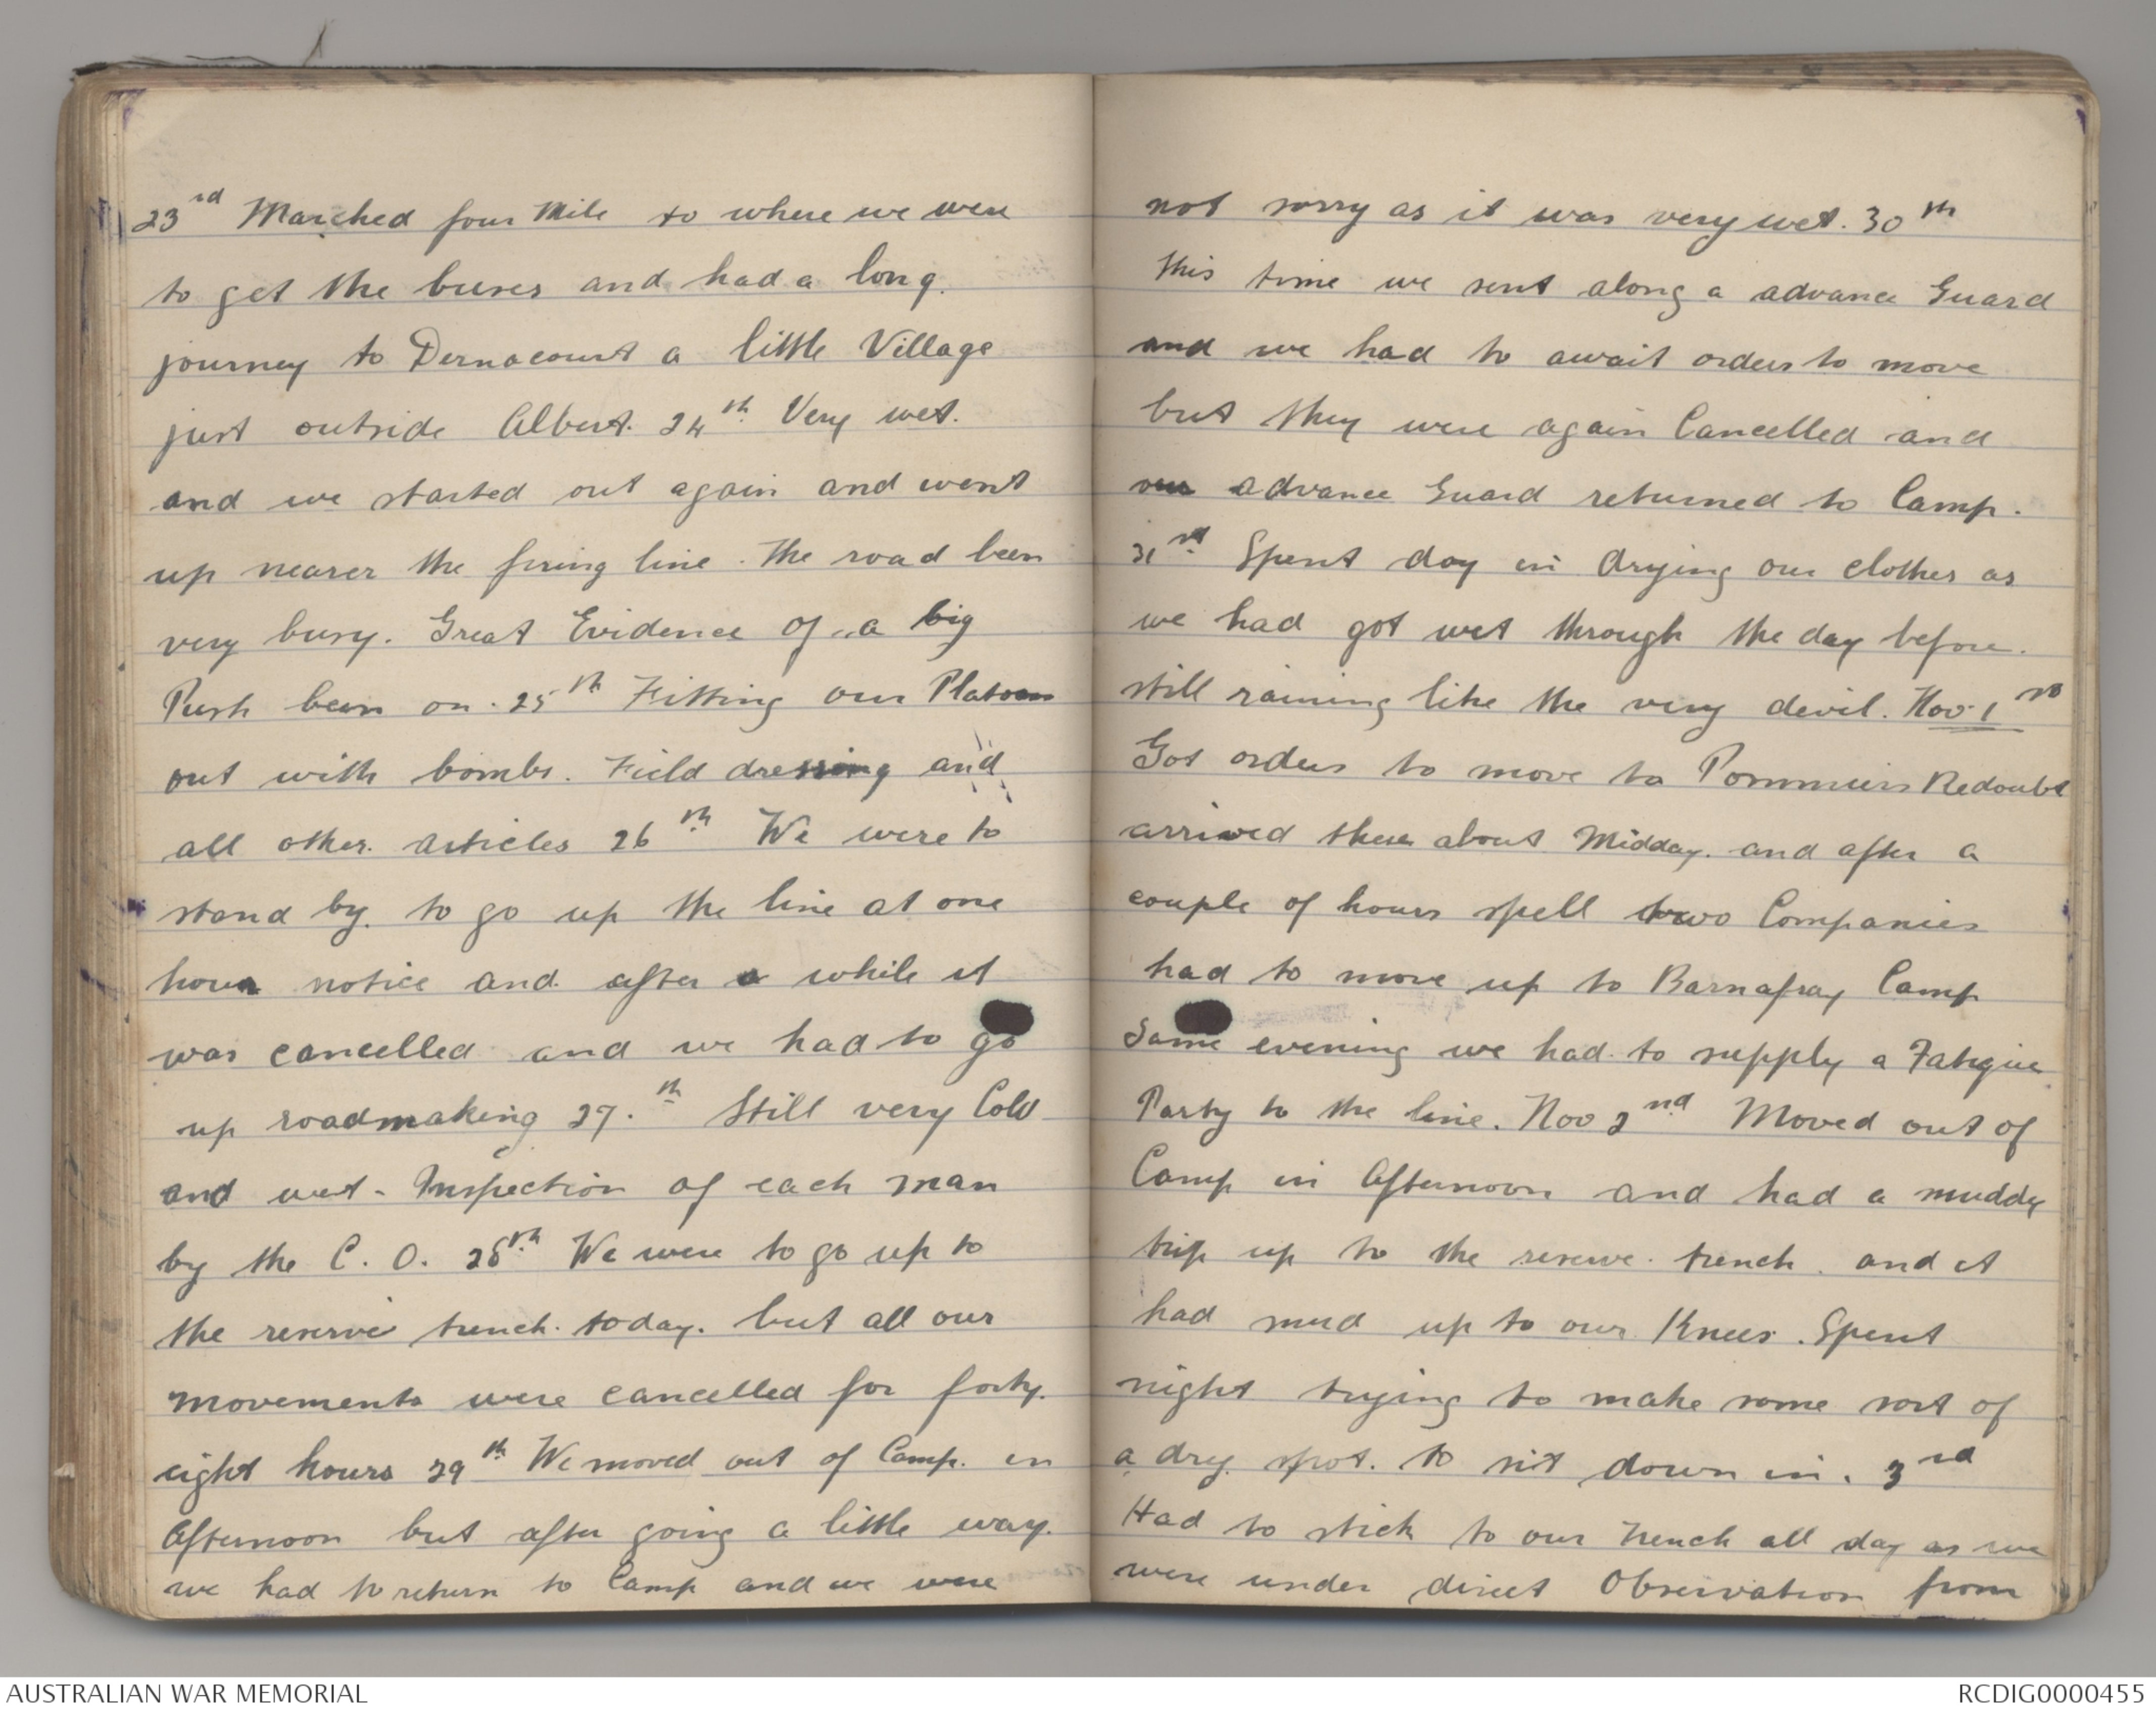 23rd Marched four Mile to where we were
to get the buses and had a long.
journey to Dernacourt a little Village
just outside Albert. 24th Very wet.
and we started out again and went
up nearer the firing line. The road been
very busy. Great Evidence of a big
Push been on. 25th Fitting our Platoon
out with bombs. Field dressing and
all other. articles 26th We were to
stand by. to go up the line at one
hour notice and. after a while it
was cancelled and we had to go
up roadmaking 27.th Still very Cold
and wet. Inspection of each man
by the C. O. 28th We were to go up to
the reserve trench. today. but all our
movements were cancelled for forty.
eight hours 29th We moved out of Camp. in
Afternoon but after going a little way.
we had to return to Camp and we were
not sorry as it was very wet. 30th
This time we sent along a advance Guard
and we had to await orders to move
but they were again Cancelled and
our advance Guard returned to Camp.
31st Spent day in drying our clothes as
we had got wet through the day before.
still raining like the very devil. Nov. 1st
Got orders to move to Pommiers Redoubt
arrived there about Midday. and after a
couple of hours spell two Companies
had to move up to Barnafray Camp
Same evening we had to supply a Fatigue
Party to the line. Nov 2nd Moved out of
Camp in Afternoon and had a muddy
trip up to the reserve. trench. and it
had mud up to our Knees. Spent
night trying to make some sort of
a dry. spot. to sit down in. 3rd
Had to stick to our trench all day as we
were under direct Observation from
AUSTRALIAN WAR MEMORIAL
RCDIG0000455